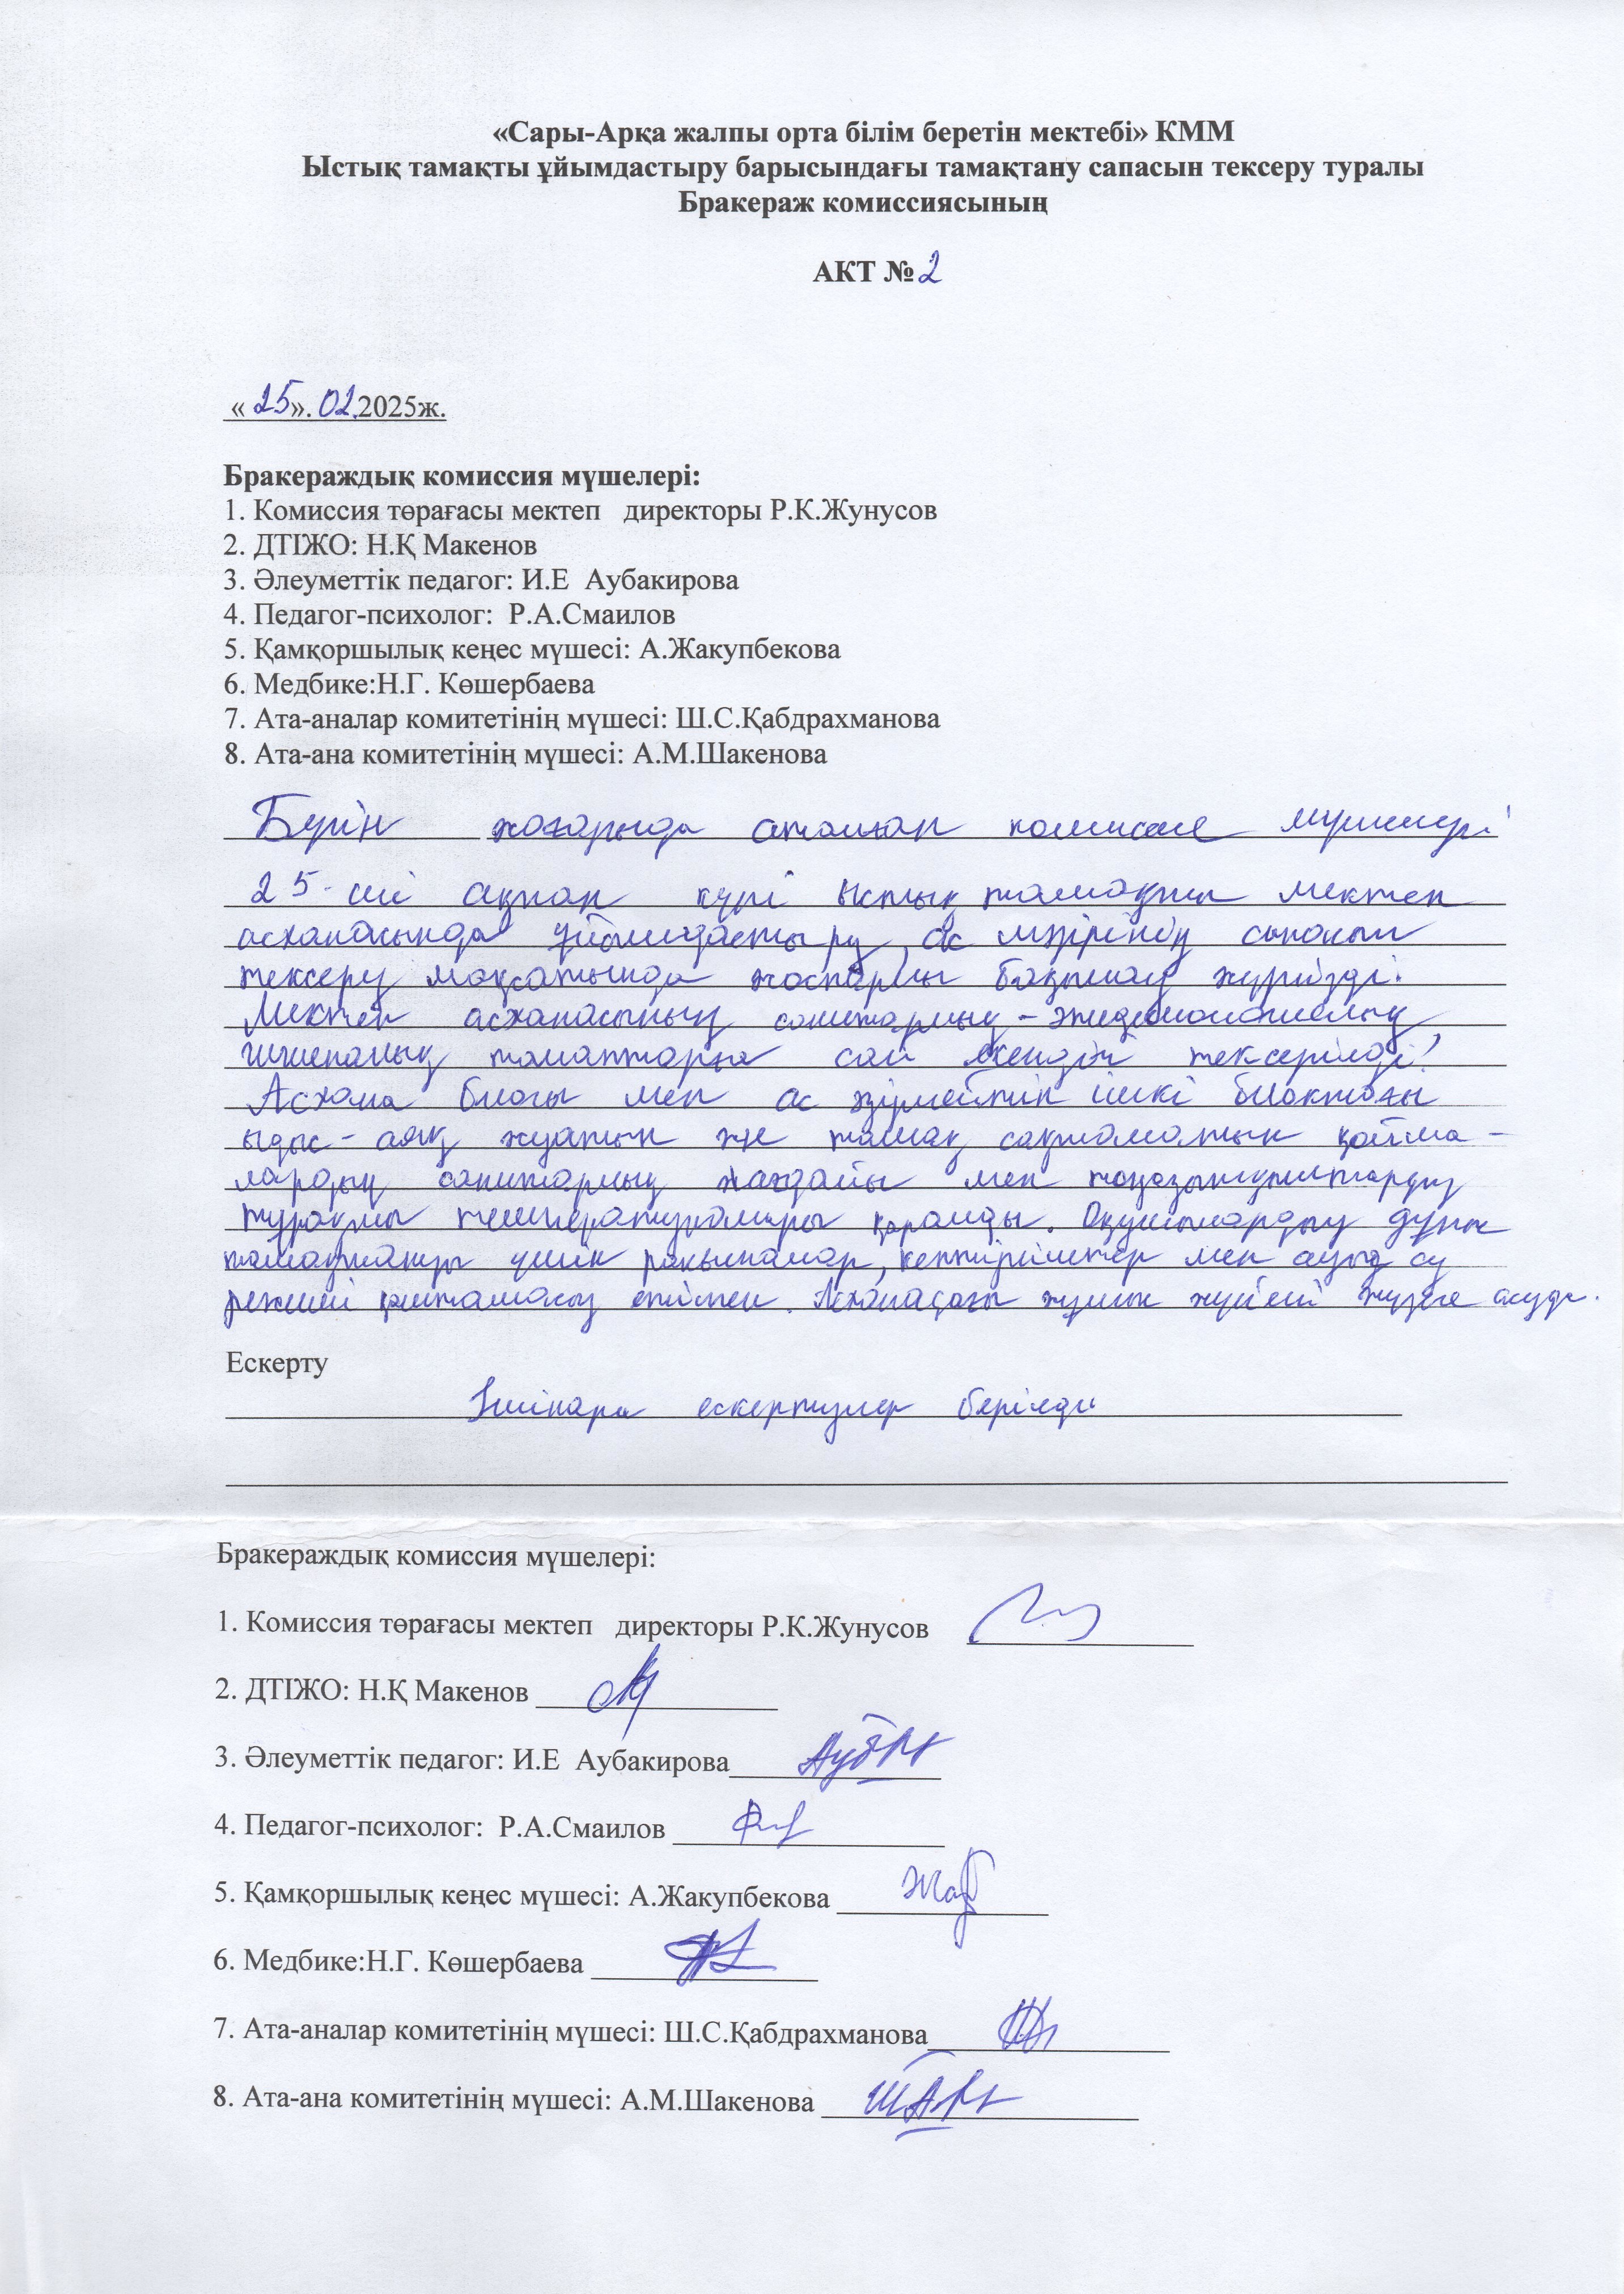 «Сары-Арқа жалпы орта білім беретін мектебі» КММ
Ыстық тамақты ұйымдастыру барысындағы тамақтану сапасын тексеру туралы
Бракераж комиссиясының
АКТ №2
«25».02.2025ж.
Бракераждық комиссия мүшелері:
1. Комиссия төрағасы мектеп директоры Р.К.Жунусов
2. ДТІЖО: Н.Қ Макенов
3. Әлеуметтік педагог: И.Е Аубакирова
4. Педагог-психолог: Р.А.Смаилов
5. Қамқоршылық кеңес мүшесі: А.Жакупбекова
6. Медбике:Н.Г. Көшербаева
7. Ата-аналар комитетінің мүшесі: Ш.С.Қабдрахманова
8. Ата-ана комитетінің мүшесі: А.М.Шакенова
Бүгін жоғарыда аталған комиссия мүшелері
25-ші ақпан күні ыстық тамақты мектеп
асханасында ұйымдастыру, ас мәзірінің сапасын
тексеру мақсатында жоспарлы бақылау жүргізді.
Мектеп асханасының санитарлық-эпидемиологиялық
гигиеналық талаптарға сай екендігі тексерілді.
Асхана блогы мен ас ішкі блоктағы
ыдыс-аяқ жуатын және тамақ сақталатын қойма-
лардың санитарлық жағдайы мен тоңазытқыштардың
тұрақты температуралары қаралды. Оқушылардың дұрыс
тамақтануы үшін кептіргіштер мен ауыз су
режимі Асханадағы жұмыс жүйелі жүзеге асуда.
Ескерту
Ішінара ескертулер берілді
Бракераждық комиссия мүшелері:
1. Комиссия төрағасы мектеп директоры Р.К.Жунусов
2. ДТІЖО: Н.Қ Макенов
3. Әлеуметтік педагог: И.Е Аубакирова
4. Педагог-психолог: Р.А.Смаилов
5. Қамқоршылық кеңес мүшесі: А.Жакупбекова
6. Медбике:Н.Г. Көшербаева
7. Ата-аналар комитетінің мүшесі: Ш.С.Қабдрахманова
8. Ата-ана комитетінің мүшесі: А.М.Шакенова